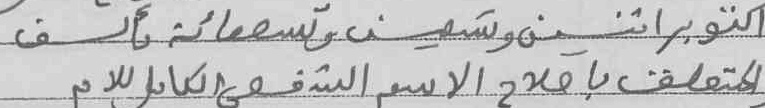 اكتوبر اثنين وتسعين وتسعمائة وألف
المتعلقة بإصلاح الاسم الشخصي الكامل للأم